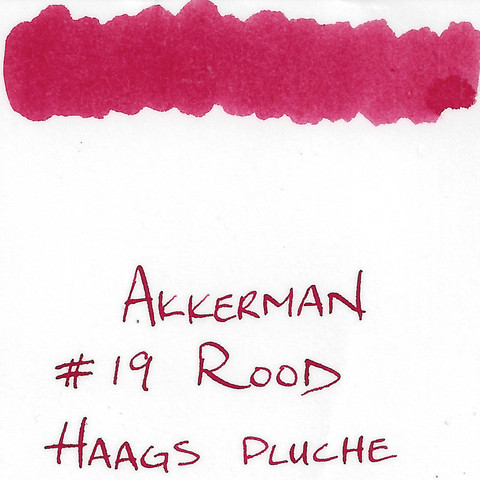 AKKERMAN
#19 ROOD
HAAGS PLUCHE